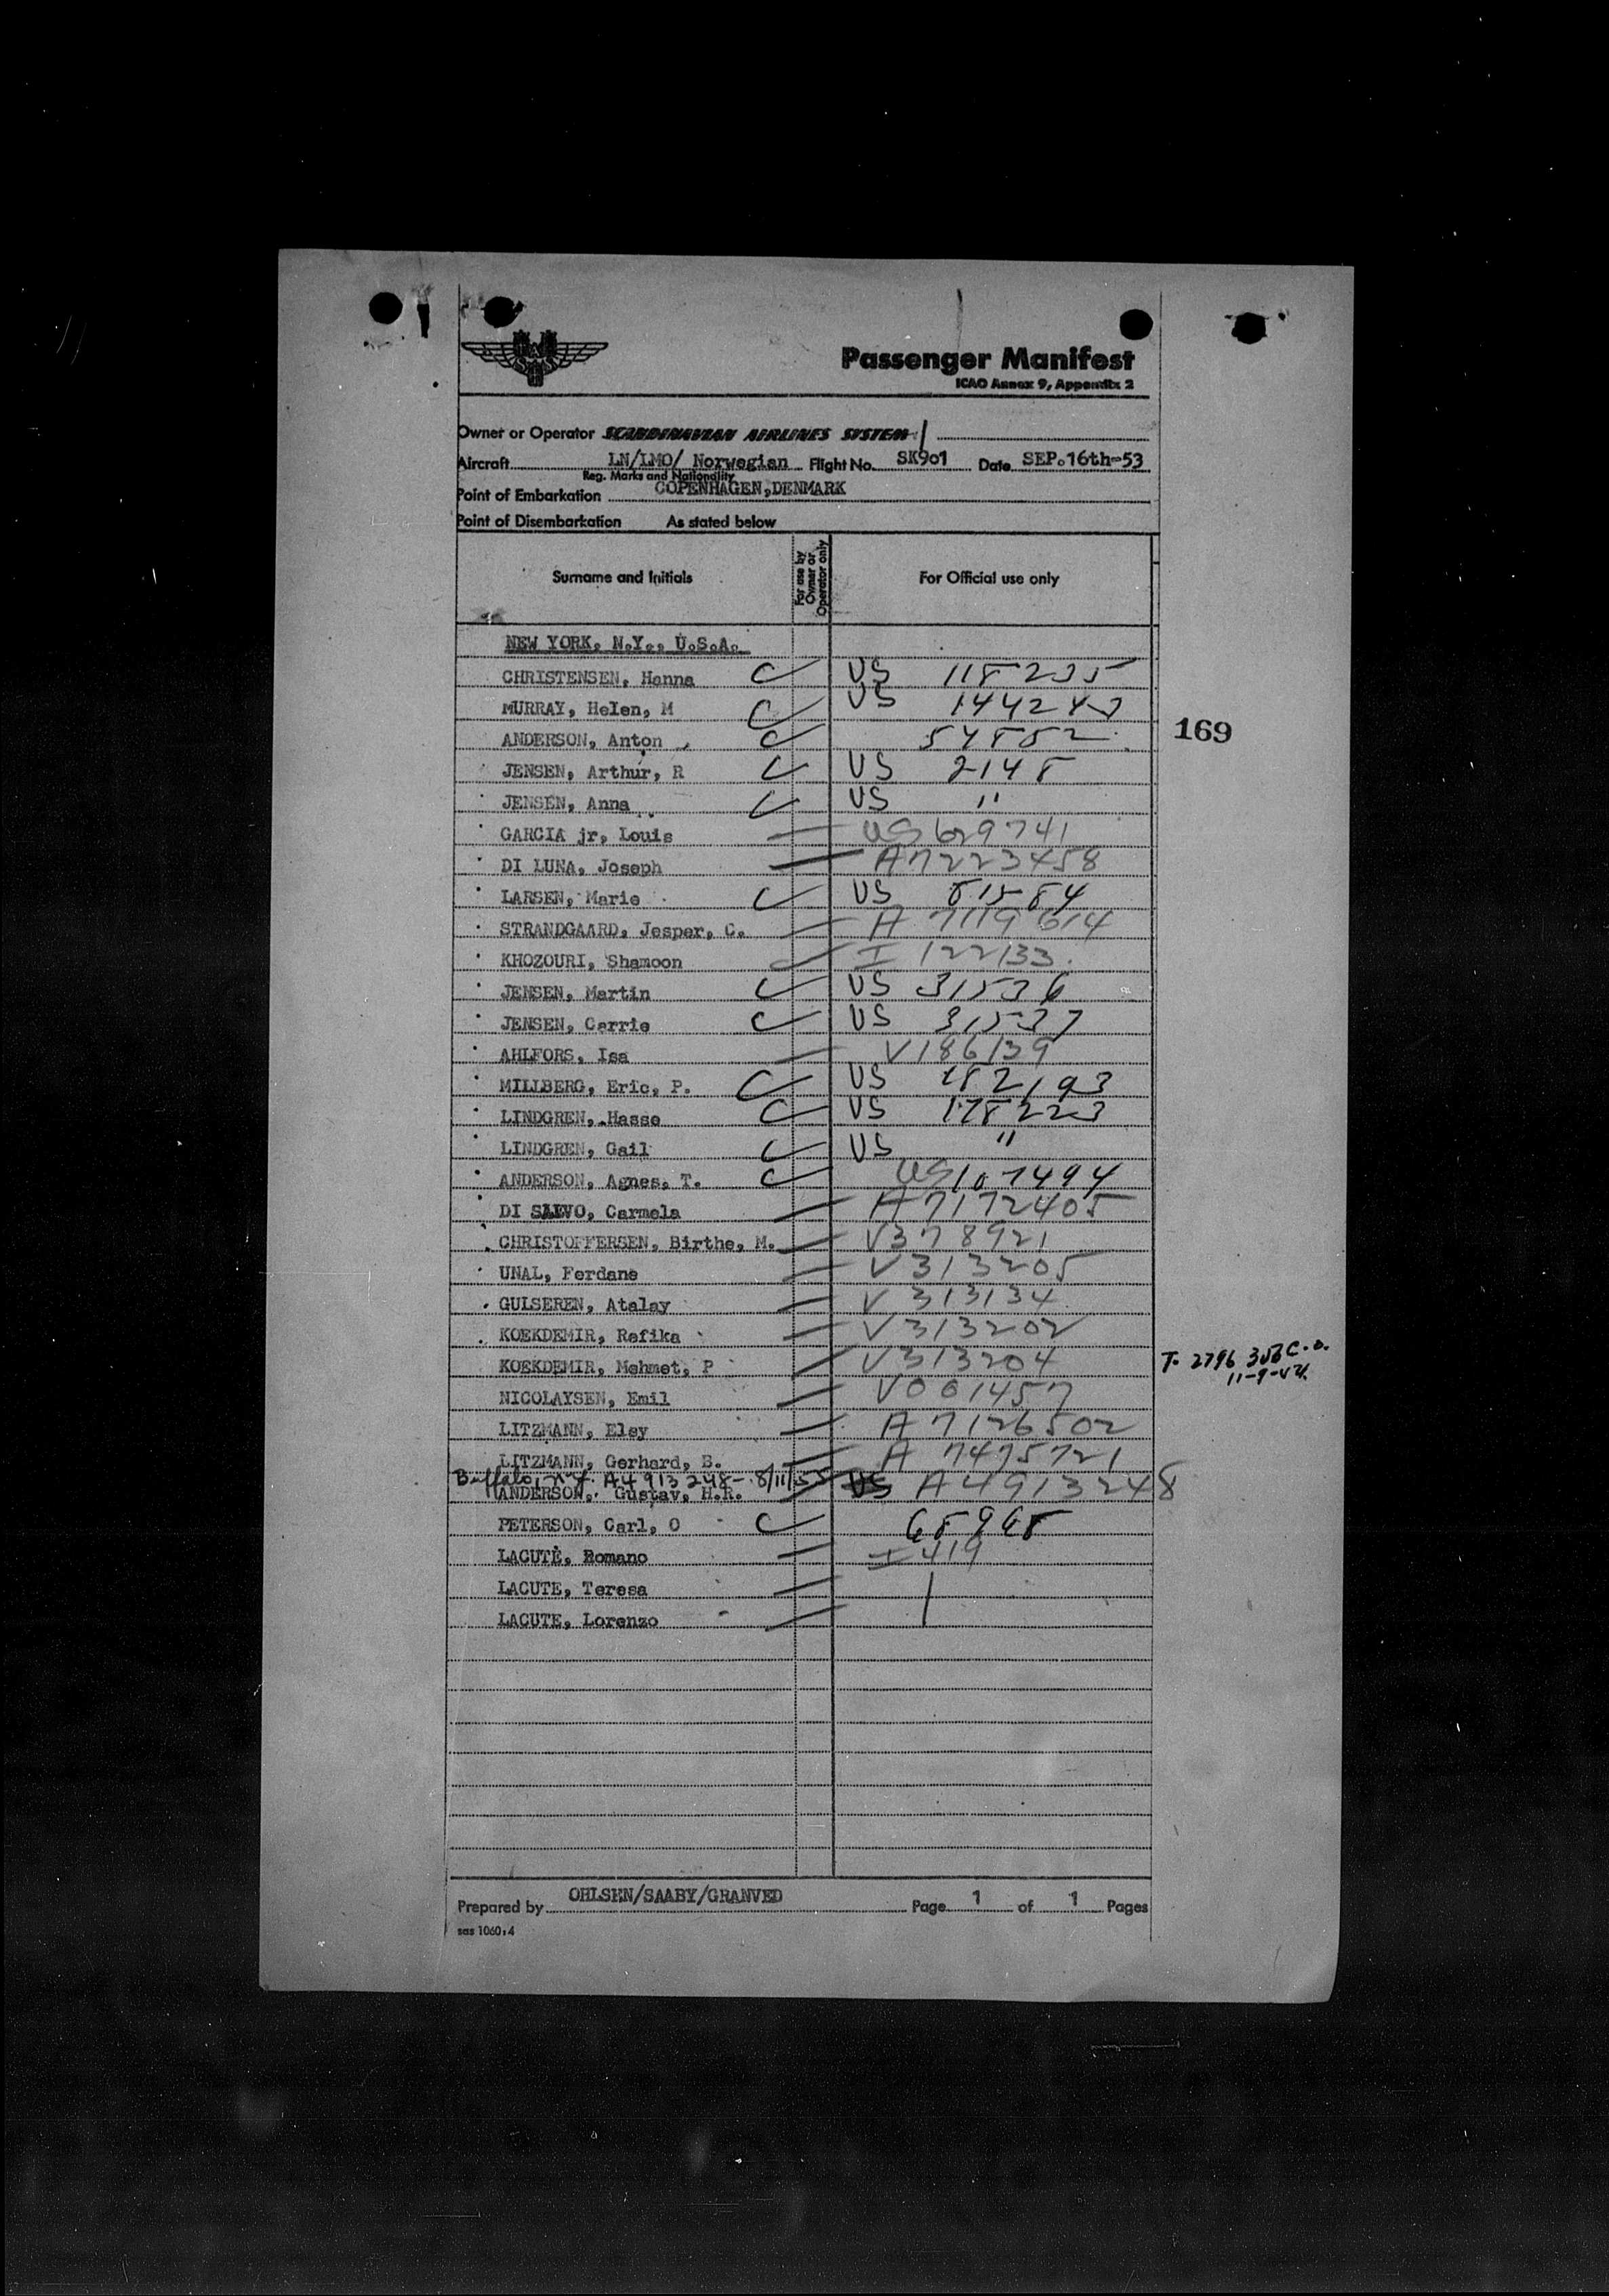 Passenger Manifest
ICAO Annex 9, Appendix 2
Owner or Operator SCANDINAVIAN AIRLINES SYSTEM
Aircraft LN/LMO/ Norwegian Flight No. SK901 Date SEP.16th-53
Reg. Marks and Nationality
Point of Embarkation COPENHAGEN,DENMARK
Point of Disembarkation As stated below
Surname and Initials For use by Owner or Operator only For Official use only
NEW YORK, N.Y., U.S.A.
CHRISTENSEN, Hanna C US 118235
MURRAY, Helen, M C US 144243
169
ANDERSON, Anton C 54852
JENSEN, Arthur, R C US 2148
JENSEN, Anna C US "
GARCIA jr, Louis US 629741
DI LUNA, Joseph A7223458
LARSEN, Marie C US 81584
STRANDGAARD, Jesper, C. A 7119614
KHOZOURI, Shamoon I 122133.
JENSEN, Martin C US 31536
JENSEN, Carrie C US 31537
AHLFORS, Isa V186139
MILLBERG, Eric, P. C US 182193
LINDGREN, Hasse C US 178223
LINDGREN, Gail C US "
ANDERSON, Agnes, T. C US 107494
DI SALVO, Carmela A 7172405
CHRISTOFFERSEN, Birthe, M. V378921
UNAL, Ferdane V313205
GULSEREN, Atalay V 313134
KOEKDEMIR, Refika V313202
KOEKDEMIR, Mehmet, P V313204 T-2796 353 C.O.
NICOLAYSEN, Emil V001457
LITZMANN, Elsy A 7126502
LITZMANN, Gerhard, B. A 7475721
Buffalo, N.Y. A4 913 248- 8/11/55
ANDERSON, Gustav, H.R. US A4913248
PETERSON, Carl, O C 68968
LACUTE, Romano I 419
LACUTE, Teresa
LACUTE, Lorenzo
Prepared by OHLSEN/SAABY/GRANVED Page 1 of 1 Pages
sas 1060:4